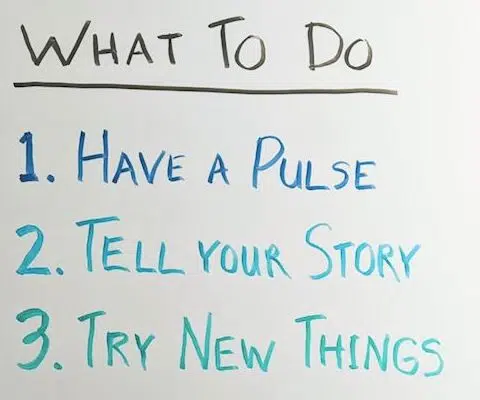 WHAT TO DO
1. HAVE A PULSE
2. TELL YOUR STORY
3. TRY NEW THINGS